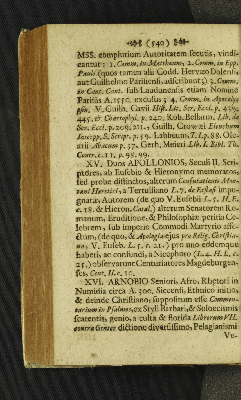 (540)
MSS. complurium Autoritatem secutis, vindi-
cantur: 1. Comm. in Matthæum, 2. Comm. in Epp.
Pauli (quos tamen alii Codd. Herveo Dolensi,
aut Guilhelmo Parisiensi, adscribunt) 3. Comm.
in Cant. Cant. sub Laudunensis etiam Nomine
Parisiis A. 1550. excusus; 4. Comm. in Apocaly-
psin. V. Guilh. Cavei Hist. Lit. Scr. Eccl. p.
445. & Chartophyl. p. 240. Rob. Bellarm. Lib. de
Scr. Eccl. p. 208, 211., Guilh. Crowæi Elenchum
Scripp. S. Script. p. 59. Labbeum. T. I. p. 88. Ole-
arii Abacum p. 37. Gerh. Meieri Lib. I. Bibl. Th.
Contr. c. 11. p. 98. 99.
XV. Duos APOLLONIOS, Seculi II. Scri-
ptores, ab Eusebio & Hieronymo memoratos,
sed probe distinctos, alterum Confutatorem Mon-
tani Hæretici, a Tertulliano L. 7. de Ecstasi impu-
gnatis Autorem (de quo V. Eusebii L. 5. H. E.
c. 18. & Hieron. Catal.) alterum Senatorem Ro-
manum, Eruditione, & Philosophiæ peritia Ce-
lebrem, sub imperio Commodi Martyrio affe-
ctum, (de quo, & Apologia ejus pro Relig. Christia-
na, V. Euseb. L. 5. c. 21.) pro uno eodemque
haberi, ac confundi, a Nicephoro (L. 4. H. E. c.
25.) observarunt Centuriatores Magdeburgen-
ses, Cent. II. c. 10.
XVI. ARNOBIO Seniori, Afro, Rhetori in
Numidia circa A. 300. Siccensi, Ethnico initio,
& deinde Christiano, suppositum esse Commen-
tarium in Psalmos, ex Styli Barbari, & Soloecismis
scatentis, genio, a culta & florida Librorum VII.
contra Gentes dictione diversissimo, Pelagianismi
Ve-